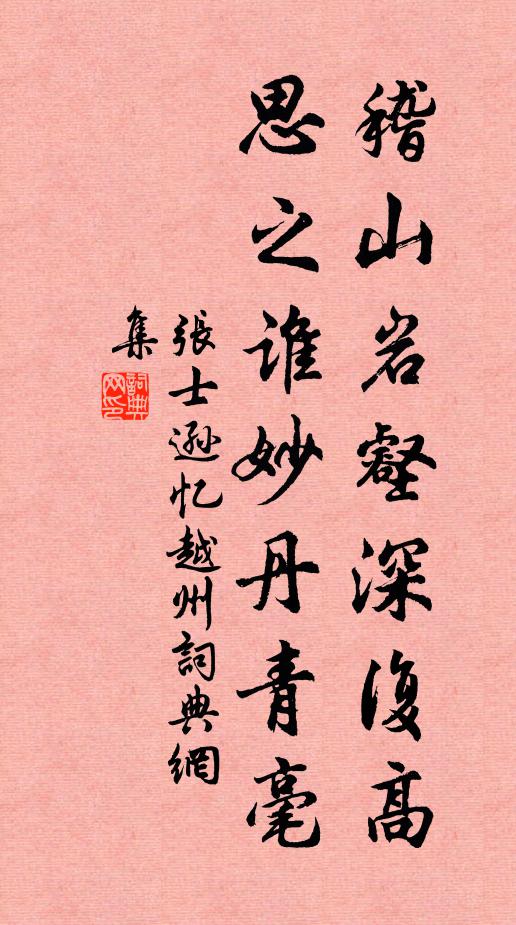 稽山岩壑深復高
思之谁妙丹青毫
張士遜忆越州詞典網
集
詞典
网印